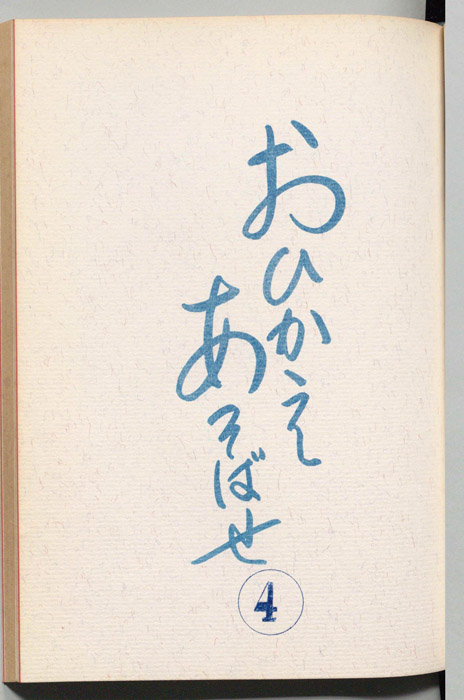 おひかえ
あそばせ
4